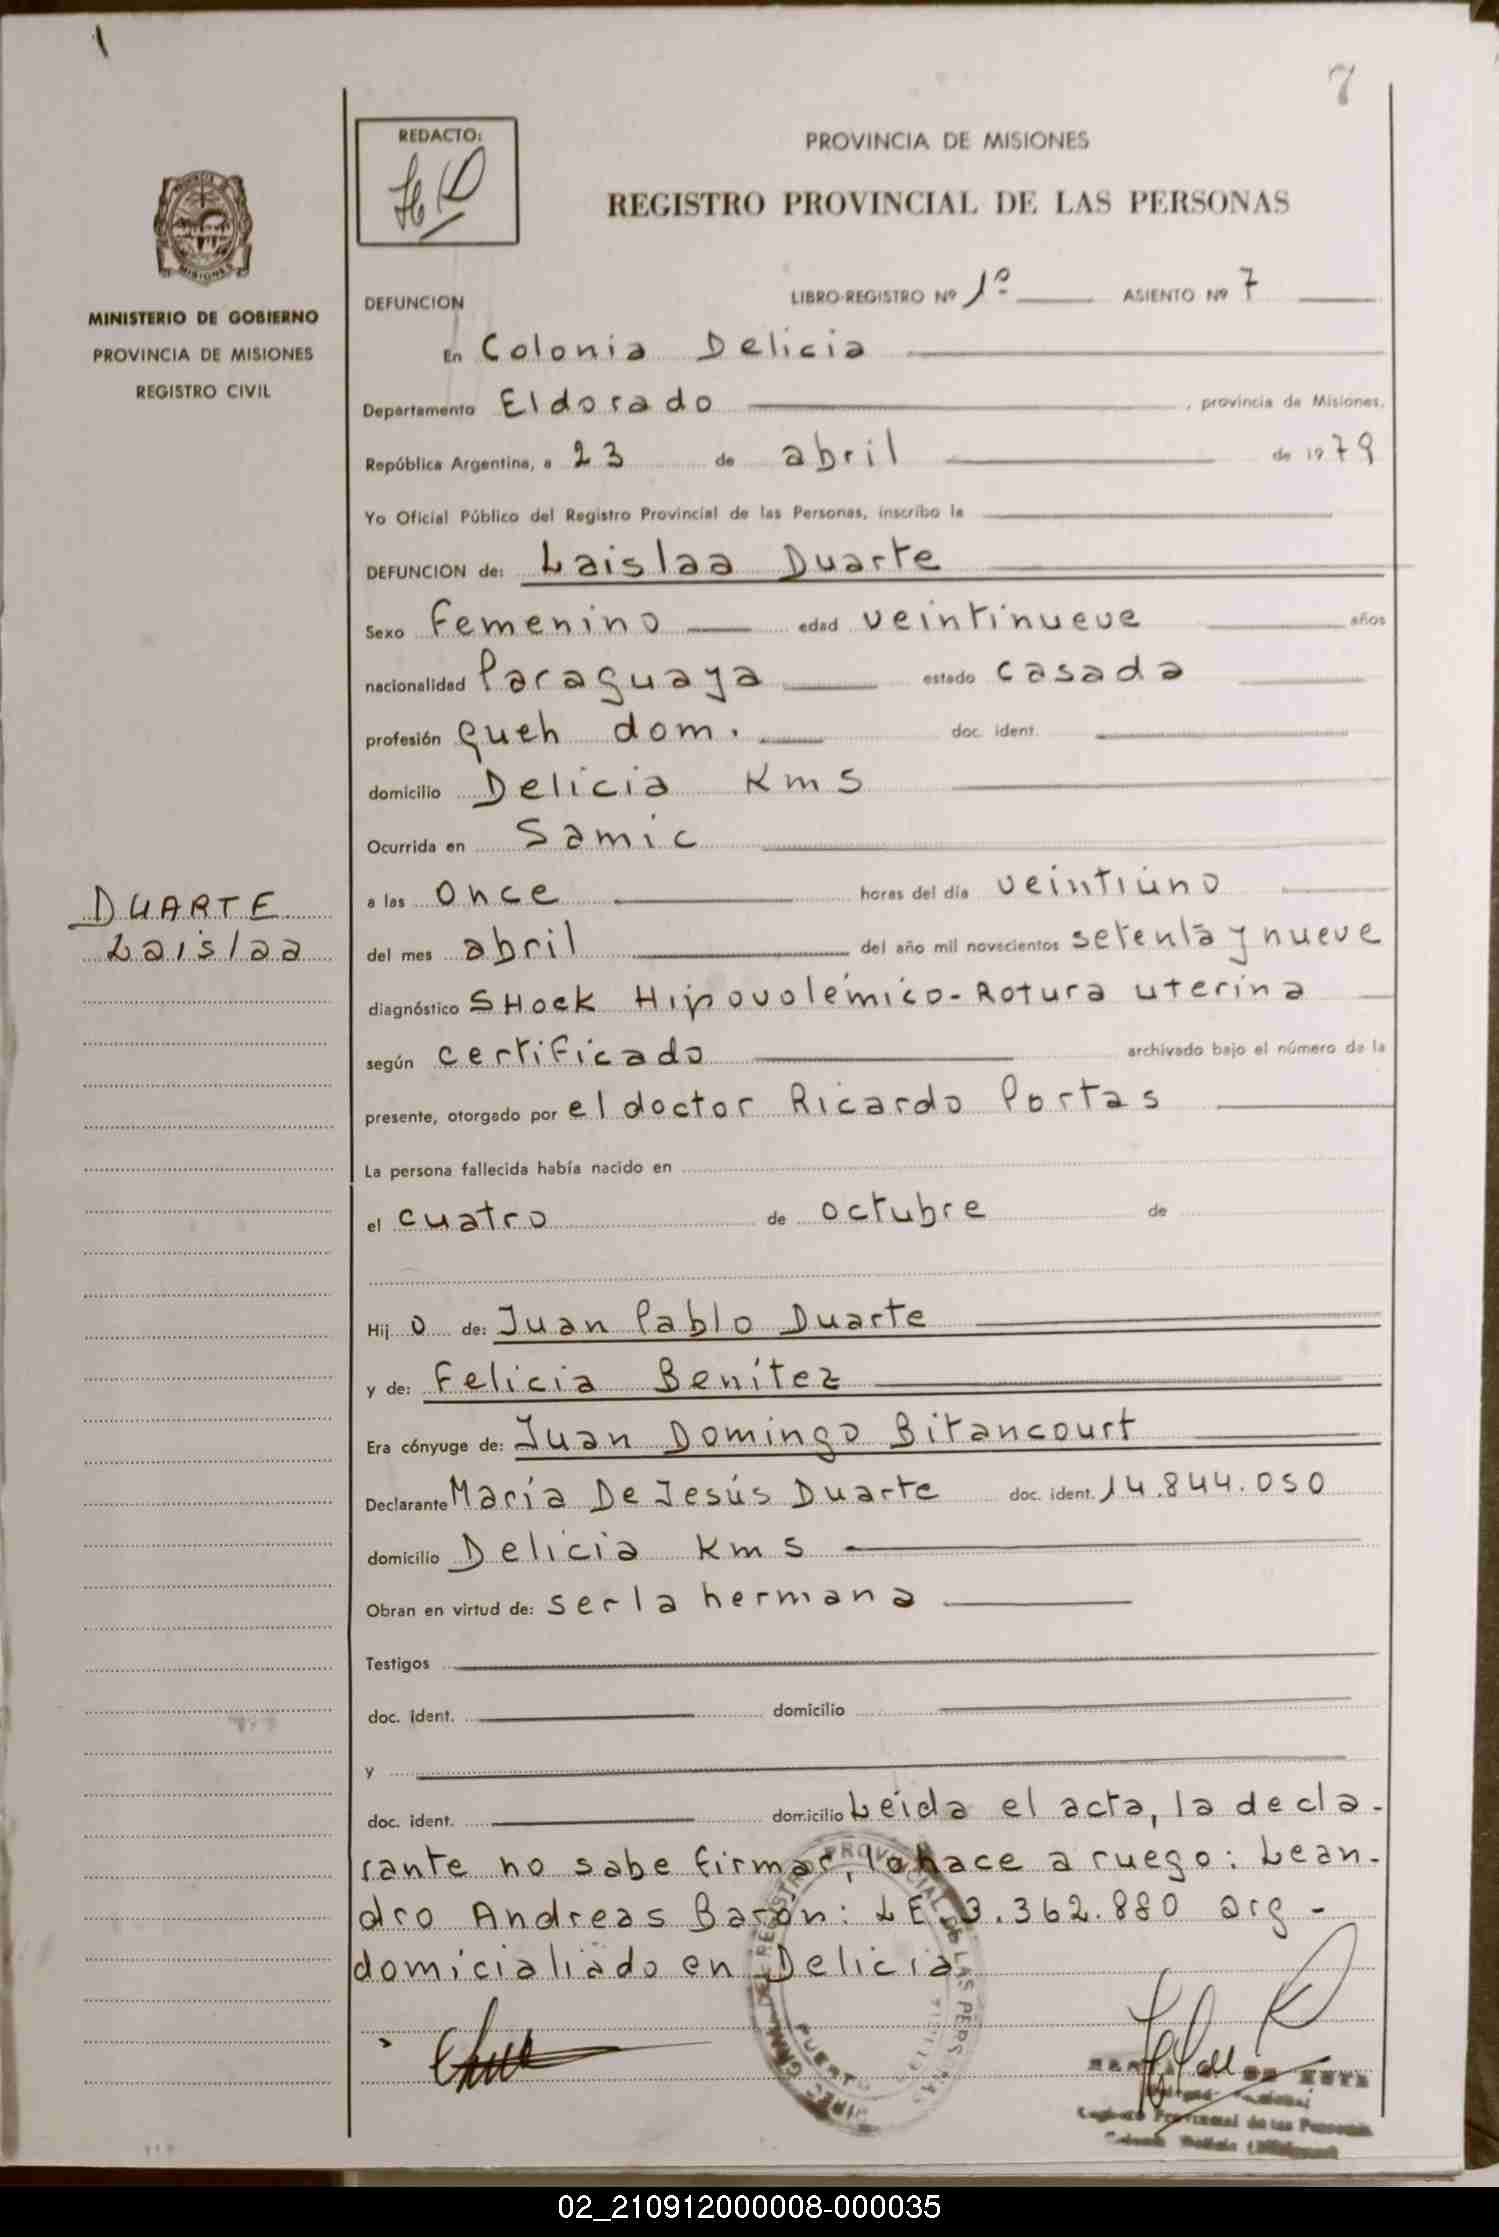 7
REDACTO:
PROVINCIA DE MISIONES
REGISTRO PROVINCIAL DE LAS PERSONAS
MISIONES
MINISTERIO DE GOBIERNO
PROVINCIA DE MISIONES
REGISTRO CIVIL
DEFUNCION LIBRO-REGISTRO Nº 1º ASIENTO Nº 7
En Colonia Delicia
Departamento Eldorado, provincia de Misiones,
República Argentina, a 23 de abril de 1979
Yo Oficial Público del Registro Provincial de las Personas, inscribo la
DEFUNCION de: Laislaa Duarte
Sexo Femenino edad veintinueve años
nacionalidad Paraguaya estado casada
profesión queh dom. doc. ident.
domicilio Delicia Km 5
Ocurrida en Samic
a las once horas del día veintiuno
DUARTE
Laislaa
del mes abril del año mil novecientos setenta y nueve
diagnóstico SHock Hipovolémico - Rotura uterina
según certificado archivado bajo el número de la
presente, otorgado por el doctor Ricardo Portas
La persona fallecida había nacido en
el cuatro de octubre de
Hij o de: Juan Pablo Duarte
y de: Felicia Benítez
Era cónyuge de: Juan Domingo Bitancourt
Declarante María De Jesús Duarte doc. ident. 14.844.050
domicilio Delicia Km 5
Obran en virtud de: ser la hermana
Testigos
doc. ident. domicilio
y
doc. ident. domicilio Leída el acta, la decla-
rante no sabe firmar, lo hace a ruego: Lean-
dro Andreas Barón: LE 3.362.880 arg -
domicialiado en Delicia
DIREC. GRAL. DEL REGISTRO PROVINCIAL DE LAS PERSONAS
PUERTO
Registro Provincial de las Personas
02_210912000008-000035